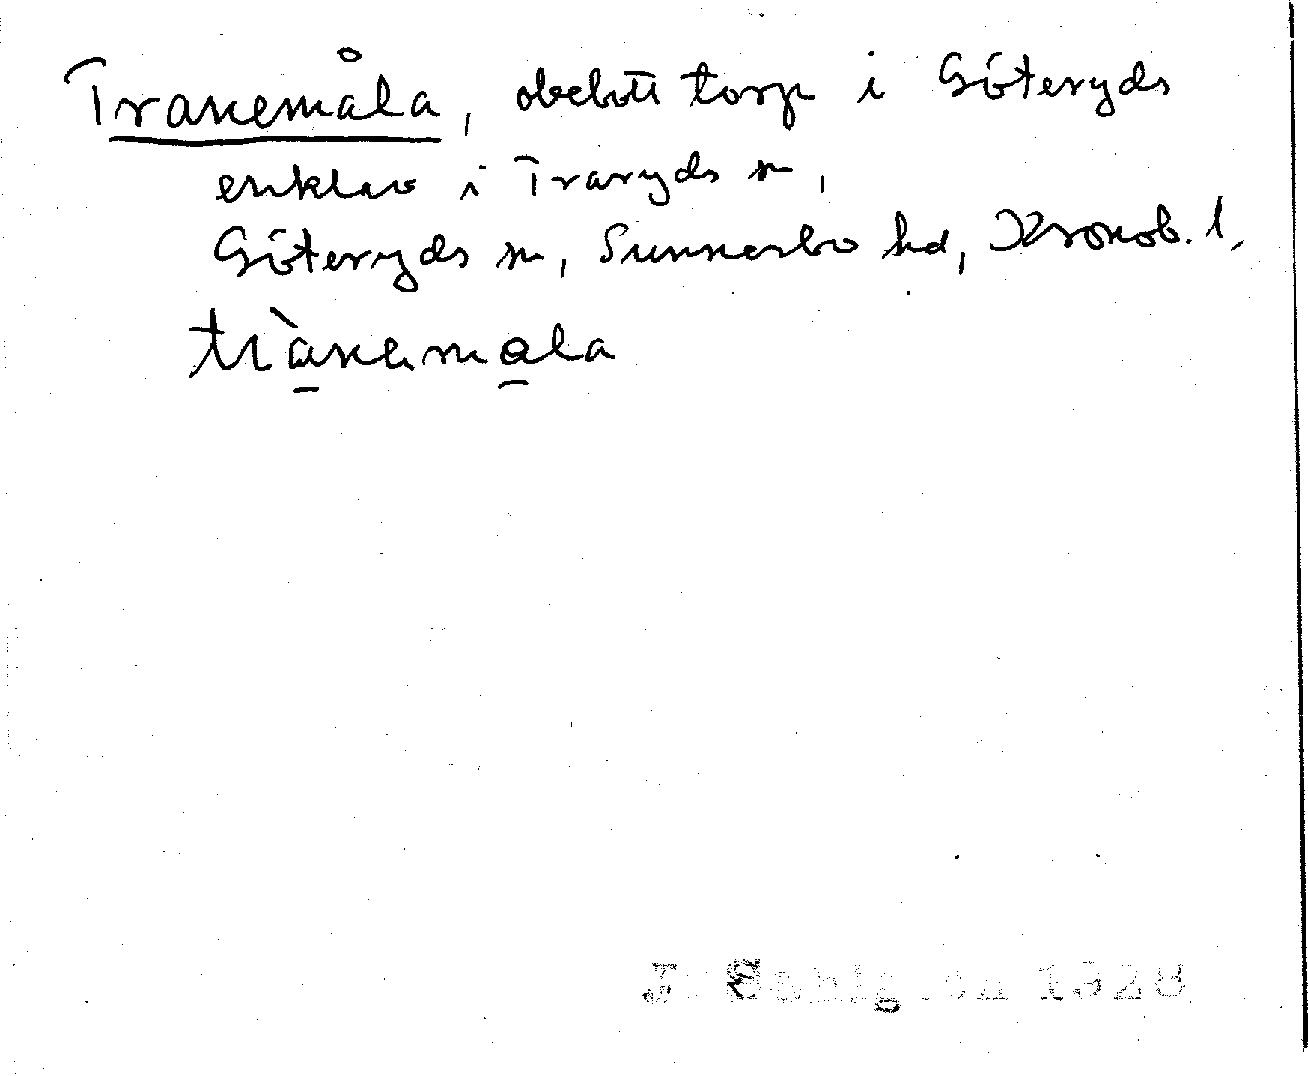 Tranemåla, obebott torp i Göteryds
enklav i Traryds sn,
Göteryds sn, Sunnerbo hd, Kronob. l.
trànamåla
J. Sahlgren 1928